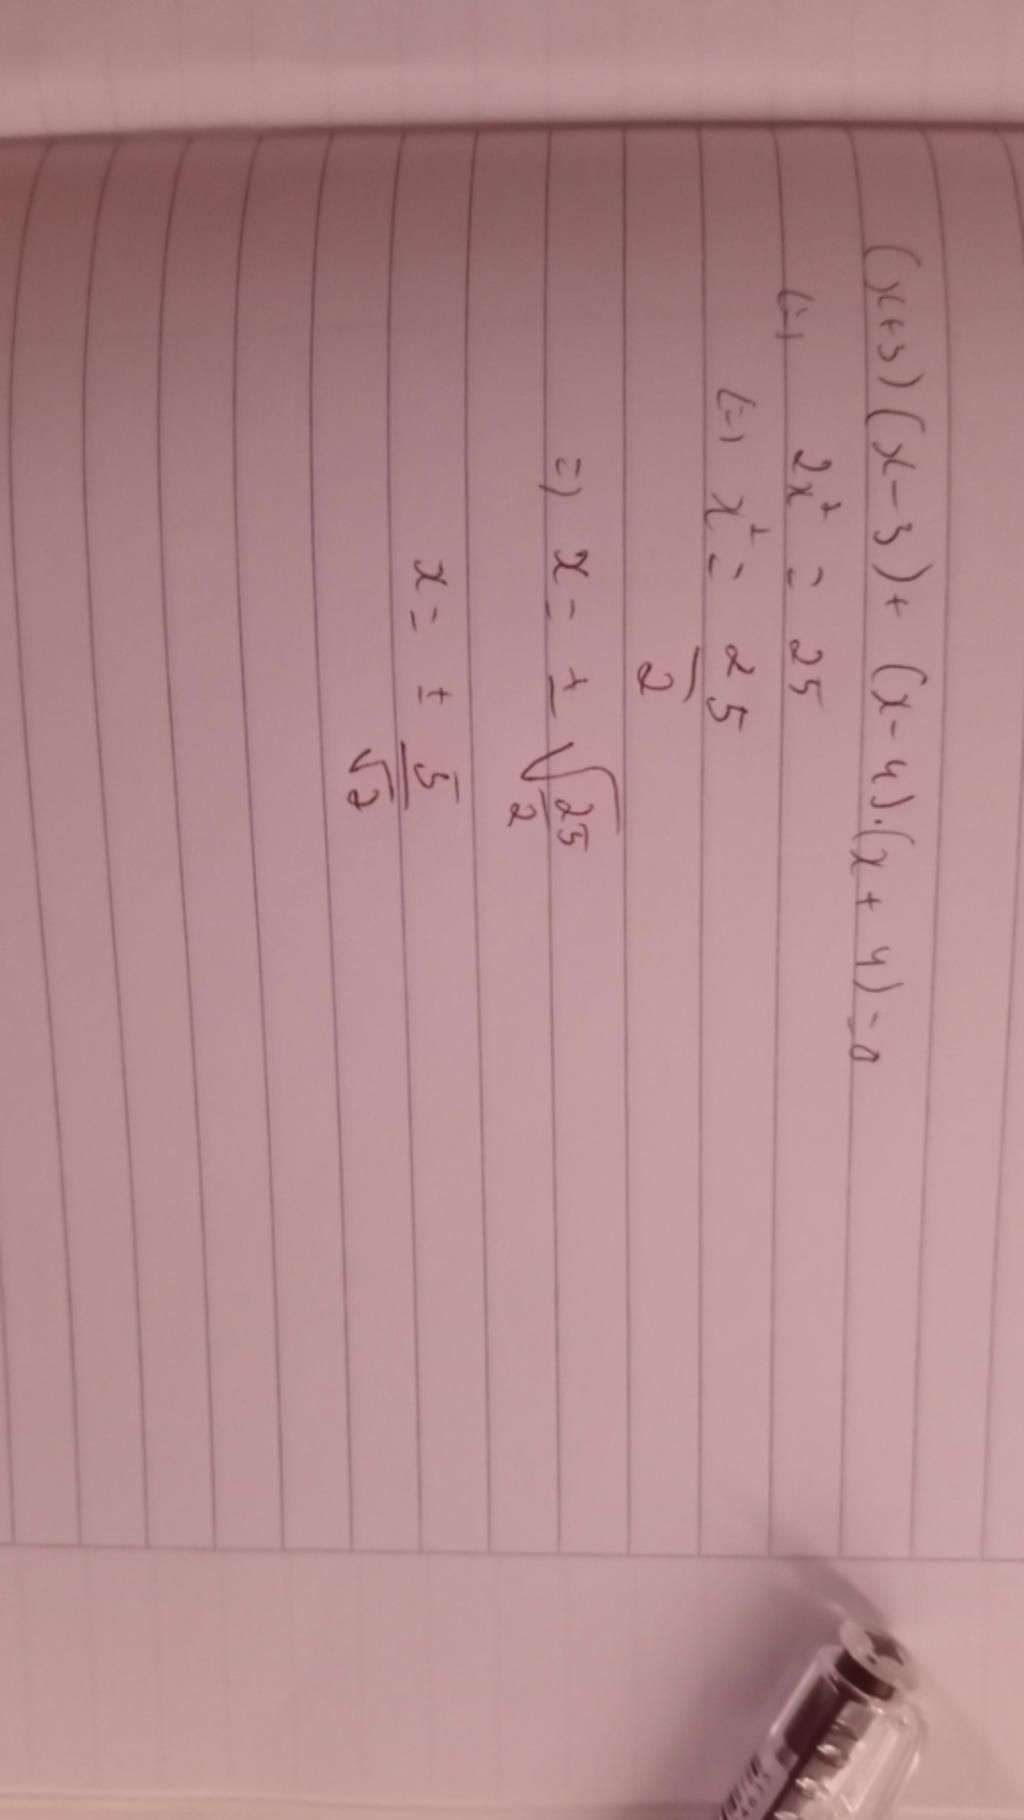 (x+3)(x-3)+ (x-4).(x+4)=0
(=) 2x² = 25
(=) x² = 25/2
=) x = ± √25/2
x = ± 5/√2